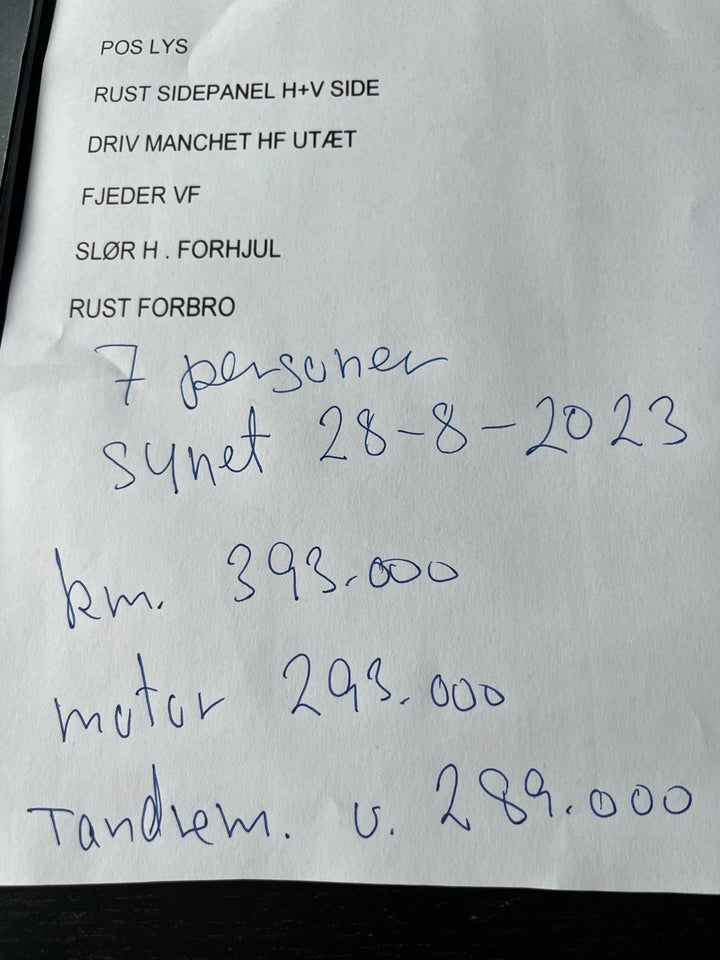 POS LYS
RUST SIDEPANEL H+V SIDE
DRIV MANCHET HF UTÆT
FJEDER VF
SLØR H . FORHJUL
RUST FORBRO
7 personer
synet 28-8-2023
km. 393.000
motor 293.000
Tandrem. v. 289.000